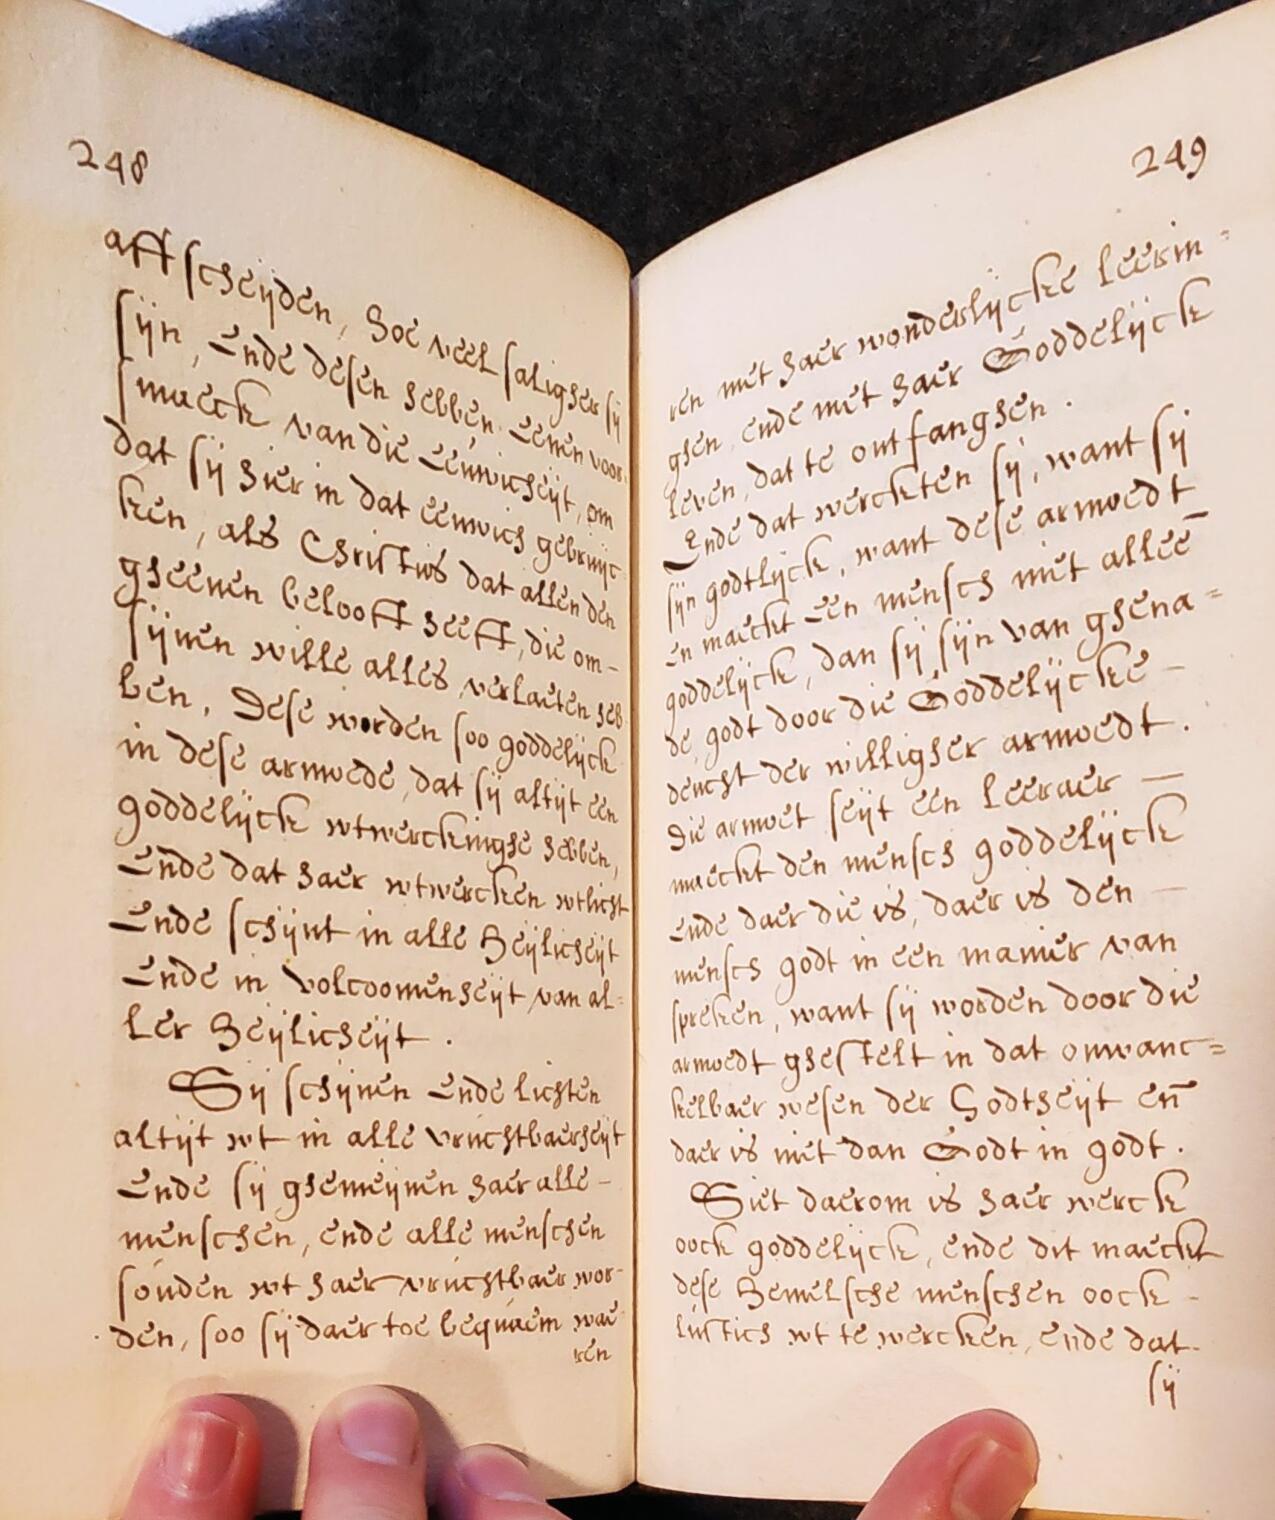 248
aff scheijden, hoe veel saligher sij
sijn, Ende desen hebben eenen voor
smaeck van die Eéuwicheijt, om
dat sij hier in dat eeuwich gebruijc
ken, als Christus dat allen den
gheenen belooft heeft, die om-
sijnen wille alles verlaeten heb
ben. Dese worden soo goddelijck
in dese armoede, dat sij altijt een
goddelijck wtwerckinghe hebben,
Ende dat haer wtwercken wtlicht
Ende schijnt in alle Heijlicheijt
Ende in volcoomenheijt van al=
ler Heijlicheijt.
Sij schijnen Ende lichten
altijt wt in alle vruchtbaerheijt
Ende sij ghemeijnen haer alle-
menschen, ende alle menschen
souden wt haer vruchtbaer wor-
den, soo sij daer toe bequaem wae
ren
249
ren met haer wonderlijcke leerin=
ghen, ende met haer Goddelijck
leven, dat te ontfanghen.
Ende dat werckten sij, want sij
sijn godtlijck, want dese armoedt
en maeckt Een mensch niet alleē
goddelijck, dan sij sijn van ghena=
de, godt door die Goddelijcke -
deucht der willigher armoedt.
Die armoet seijt een leeraer —
maeckt den mensch goddelijck
Ende daer die is, daer is den —
mensch godt in een manier van
spreken, want sij worden door die
armoedt ghestelt in dat onwanc=
kelbaer wesen der Godtheijt en̄
daer is niet dan Godt in godt.
Siet daerom is haer werck
oock goddelijck, ende dit maeckt
dese Hemelsche menschen oock -
lustich wt te wercken, ende dat-
sij